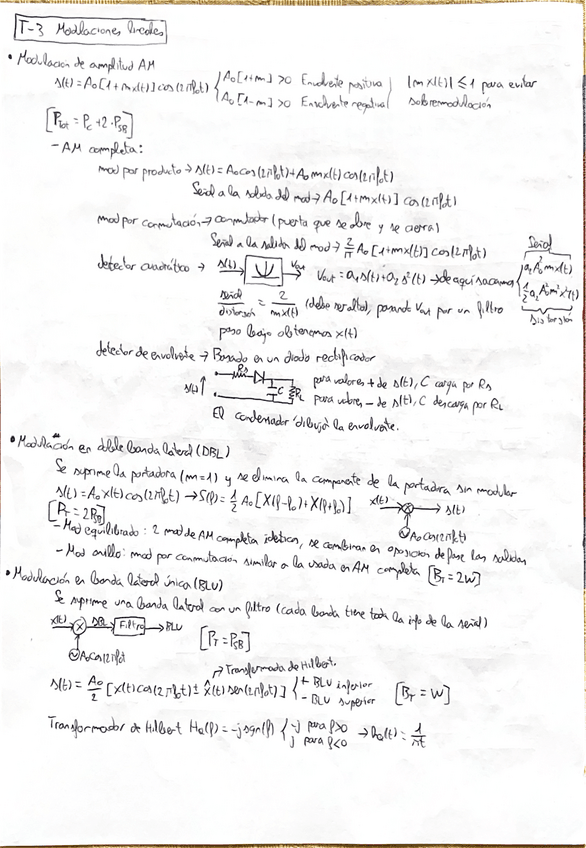 T-3 Modulaciones lineales
• Modulacion de amplitud AM
s(t) = A₀[1+mx(t)] cos(2πf₀t) { A₀[1+m] >0 Envolvente positiva | |mx(t)| ≤ 1 para evitar
A₀[1-m] >0 Envolvente negativa | sobremodulación
[P_Tot = P_C + 2·P_SB]
- AM completa:
mod por producto → s(t) = A₀cos(2πf₀t) + A₀mx(t) cos(2πf₀t)
Señal a la salida del mod → A₀[1+mx(t)] cos(2πf₀t)
mod por conmutación → conmutador (puerta que se abre y se cierra)
Señal a la salida del mod → 2/π A₀[1+mx(t)] cos(2πf₀t)
Señal
detector cuadrático → s(t) → Vout → Vout = a₁s(t) + a₂s²(t) → de aquí sacamos { a₂A₀²mx(t)
½a₂A₀²m²x²(t)
Distorsión
señal/distorsión = 2/mx(t) (debe ser alto), pasando Vout por un filtro
paso bajo obtenemos x(t)
detector de envolvente → Basado en un diodo rectificador
s(t) Rs C RL
para valores + de s(t), C carga por Rs
para valores - de s(t), C descarga por RL
El condensador "dibuja" la envolvente.
• Modulación en doble banda lateral (DBL)
Se suprime la portadora (m=1) y se elimina la componente de la portadora sin modular
s(t) = A₀x(t) cos(2πf₀t) → S(f) = ½ A₀[X(f-f₀) + X(f+f₀)] x(t) → ⊗ → s(t)
A₀cos(2πf₀t)
[P_T = 2P_SB]
- Mod equilibrado: 2 mod de AM completa identicos, se combinan en oposicion de fase las salidas
- Mod anillo: mod por conmutacion similar a la usada en AM completa [B_T = 2W]
• Modulación en banda lateral única (BLU)
Se suprime una banda lateral con un filtro (cada banda tiene toda la info de la señal)
x(t) → ⊗ DBL → Filtro → BLU
A₀cos(2πf₀t
[P_T = P_SB]
Transformada de Hilbert.
s(t) = A₀/2 [x(t)cos(2πf₀t) ± x̂(t)sen(2πf₀t)] { + BLU inferior
- BLU superior [B_T = W]
Transformador de Hilbert H_Q(f) = -j sgn(f) { -j para f>0
j para f<0 → h_Q(t) = 1/πt